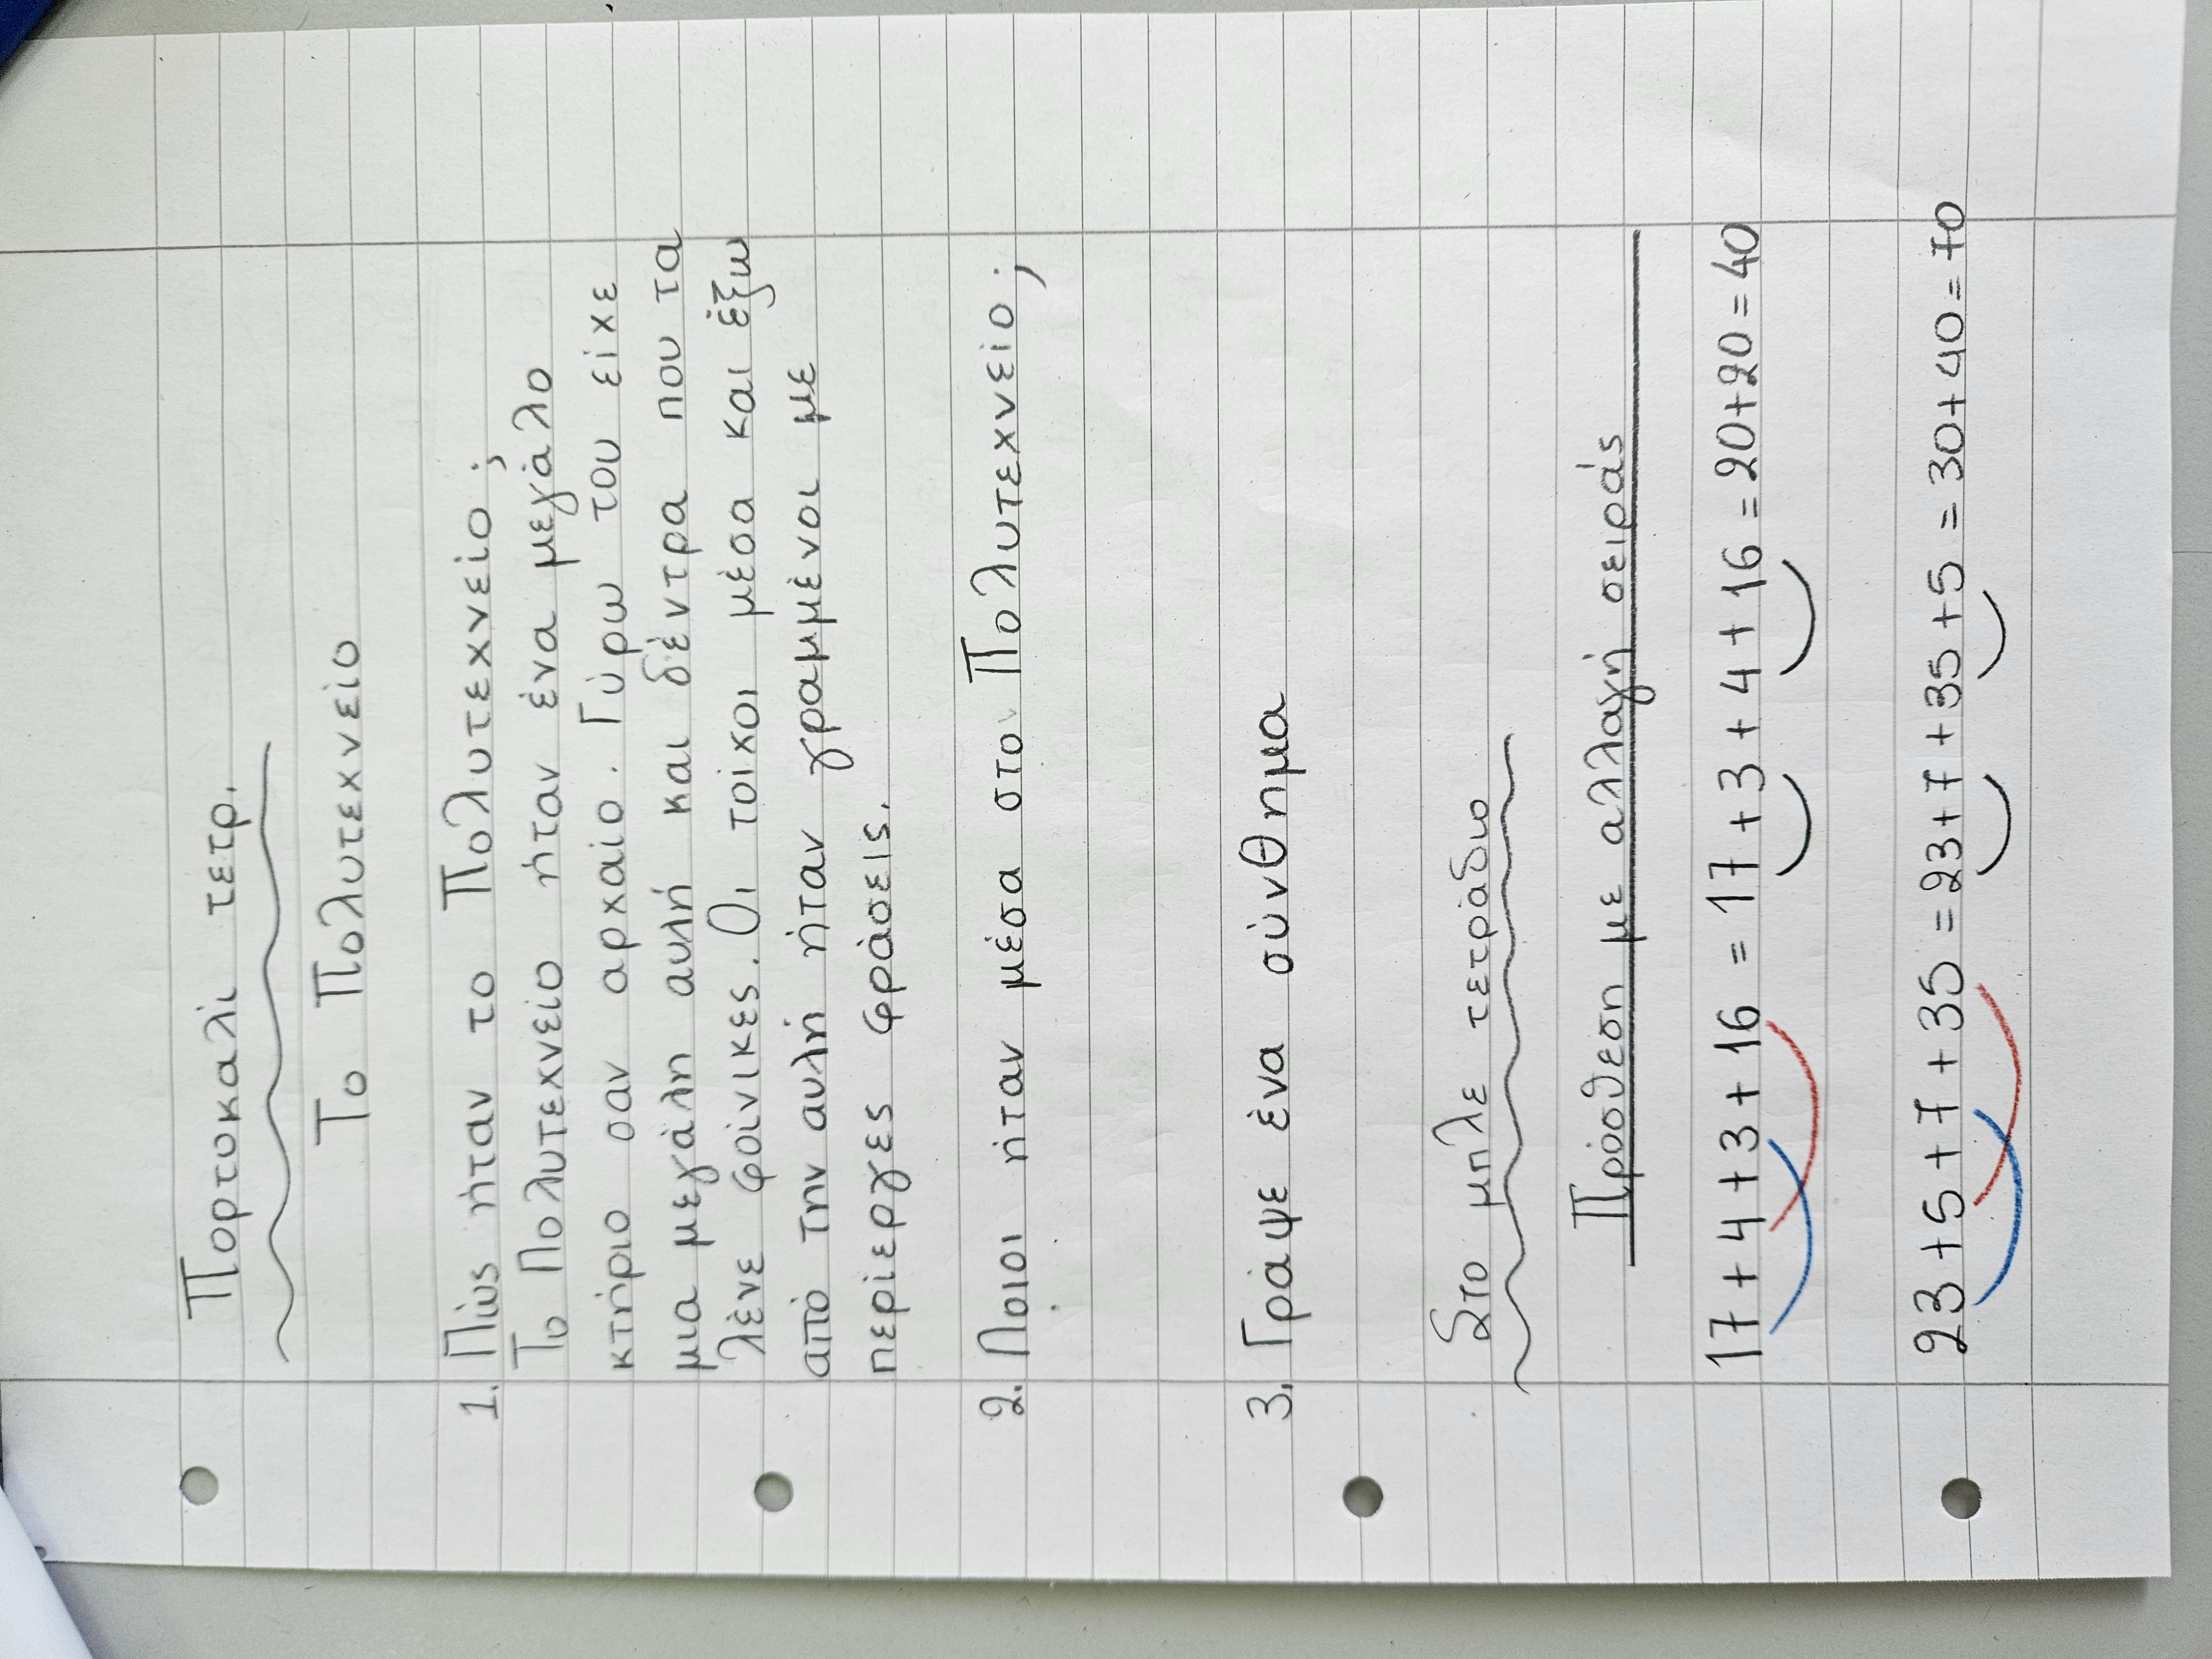 Πορτοκαλί τετρ.
Το Πολυτεχνείο
1. Πώς ήταν το Πολυτεχνείο;
Το Πολυτεχνείο ήταν ένα μεγάλο
κτήριο σαν αρχαίο. Γύρω του είχε
μια μεγάλη αυλή και δέντρα που τα
λένε φοίνικες. Οι τοίχοι μέσα και έξω
από την αυλή ήταν γραμμένοι με
περίεργες φράσεις.
2. Ποιοι ήταν μέσα στο Πολυτεχνείο;
3. Γράψε ένα σύνθημα
Στο μπλε τετράδιο
Πρόσθεση με αλλαγή σειράς
17+4+3+16 = 17+3+4+16 = 20+20=40
23+5+7+35=23+7+35+5=30+40=70